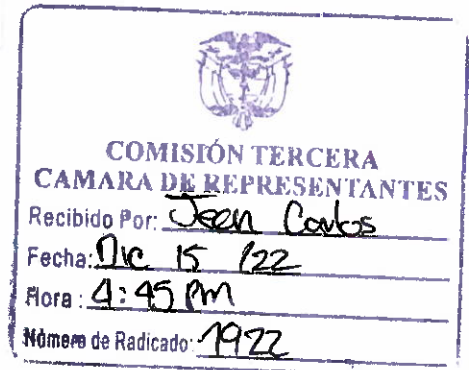 COMISIÓN TERCERA
CAMARA DE REPRESENTANTES
Recibido Por: Jean Carlos
Fecha: Dic 15 /22
Hora : 4:45 Pm
Número de Radicado: 1922